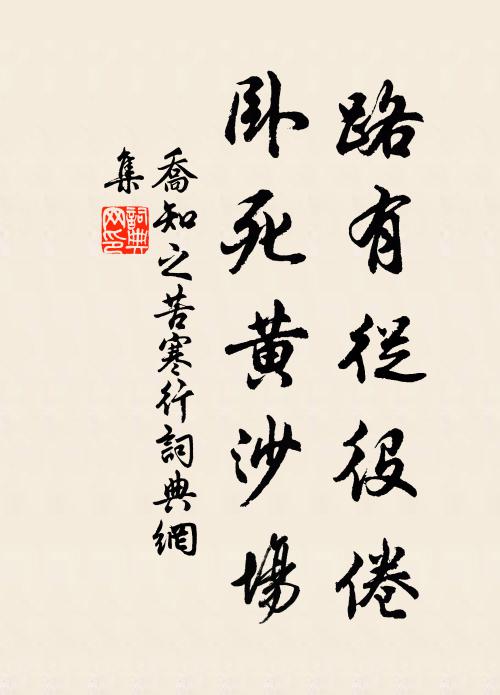 路有從役倦
臥死黃沙場
喬知之苦寒行詞典網
集
詞典
网印